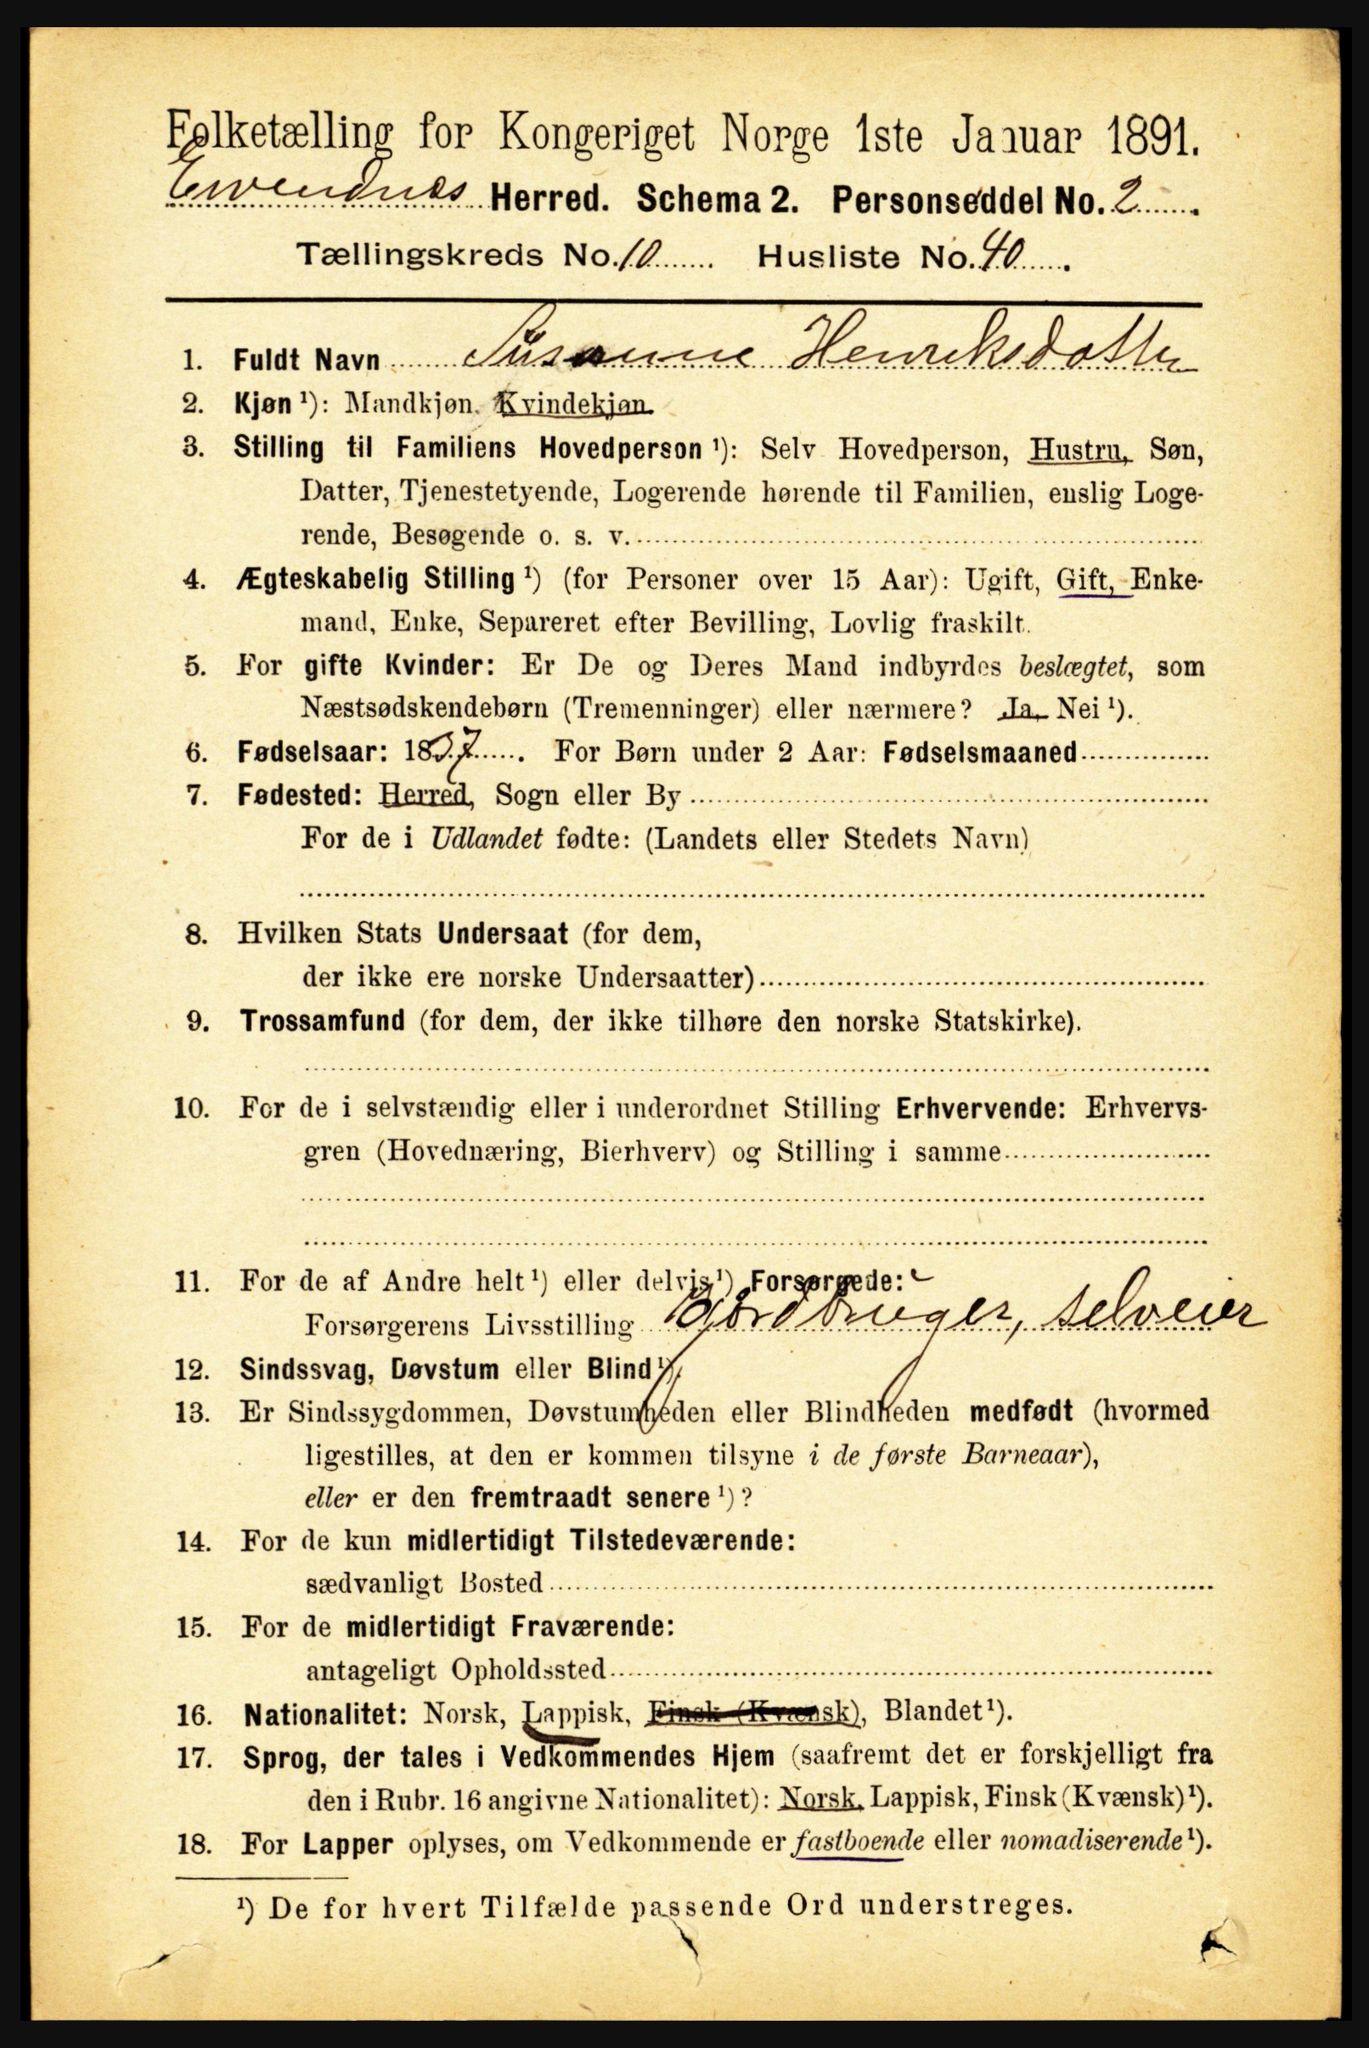 Folketælling for Kongeriget Norge 1ste Januar 1891.
Evendnes Herred. Schema 2. Personseddel No. 2.
Tællingskreds No. 10. Husliste No. 40.
1. Fuldt Navn Susanne Henriksdatter
2. Kjøn ¹): Mandkjøn. Kvindekjøn.
3. Stilling til Familiens Hovedperson ¹): Selv Hovedperson, Hustru, Søn,
Datter, Tjenestetyende, Logerende hørende til Familien, enslig Loge-
rende, Besøgende o. s. v.
4. Ægteskabelig Stilling ¹) (for Personer over 15 Aar): Ugift, Gift, Enke-
mand, Enke, Separeret efter Bevilling, Lovlig fraskilt.
5. For gifte Kvinder: Er De og Deres Mand indbyrdes beslægtet, som
Næstsødskendebørn (Tremenninger) eller nærmere? Ja, Nei ¹).
6. Fødselsaar: 1837. For Børn under 2 Aar: Fødselsmaaned
7. Fødested: Herred, Sogn eller By
For de i Udlandet fødte: (Landets eller Stedets Navn)
8. Hvilken Stats Undersaat (for dem,
der ikke ere norske Undersaatter)
9. Trossamfund (for dem, der ikke tilhøre den norske Statskirke).
10. For de i selvstændig eller i underordnet Stilling Erhvervende: Erhvervs-
gren (Hovednæring, Bierhverv) og Stilling i samme
11. For de af Andre helt ¹) eller delvis ¹) Forsørgede:
Forsørgerens Livsstilling Gjordbruger, selveier
12. Sindssvag, Døvstum eller Blind ¹).
13. Er Sindssygdommen, Døvstumheden eller Blindheden medfødt (hvormed
ligestilles, at den er kommen tilsyne i de første Barneaar),
eller er den fremtraadt senere ¹)?
14. For de kun midlertidigt Tilstedeværende:
sædvanligt Bosted
15. For de midlertidigt Fraværende:
antageligt Opholdssted
16. Nationalitet: Norsk, Lappisk, Finsk (Kvænsk), Blandet ¹).
17. Sprog, der tales i Vedkommendes Hjem (saafremt det er forskjelligt fra
den i Rubr. 16 angivne Nationalitet): Norsk, Lappisk, Finsk (Kvænsk) ¹).
18. For Lapper oplyses, om Vedkommende er fastboende eller nomadiserende ¹).
¹) De for hvert Tilfælde passende Ord understreges.